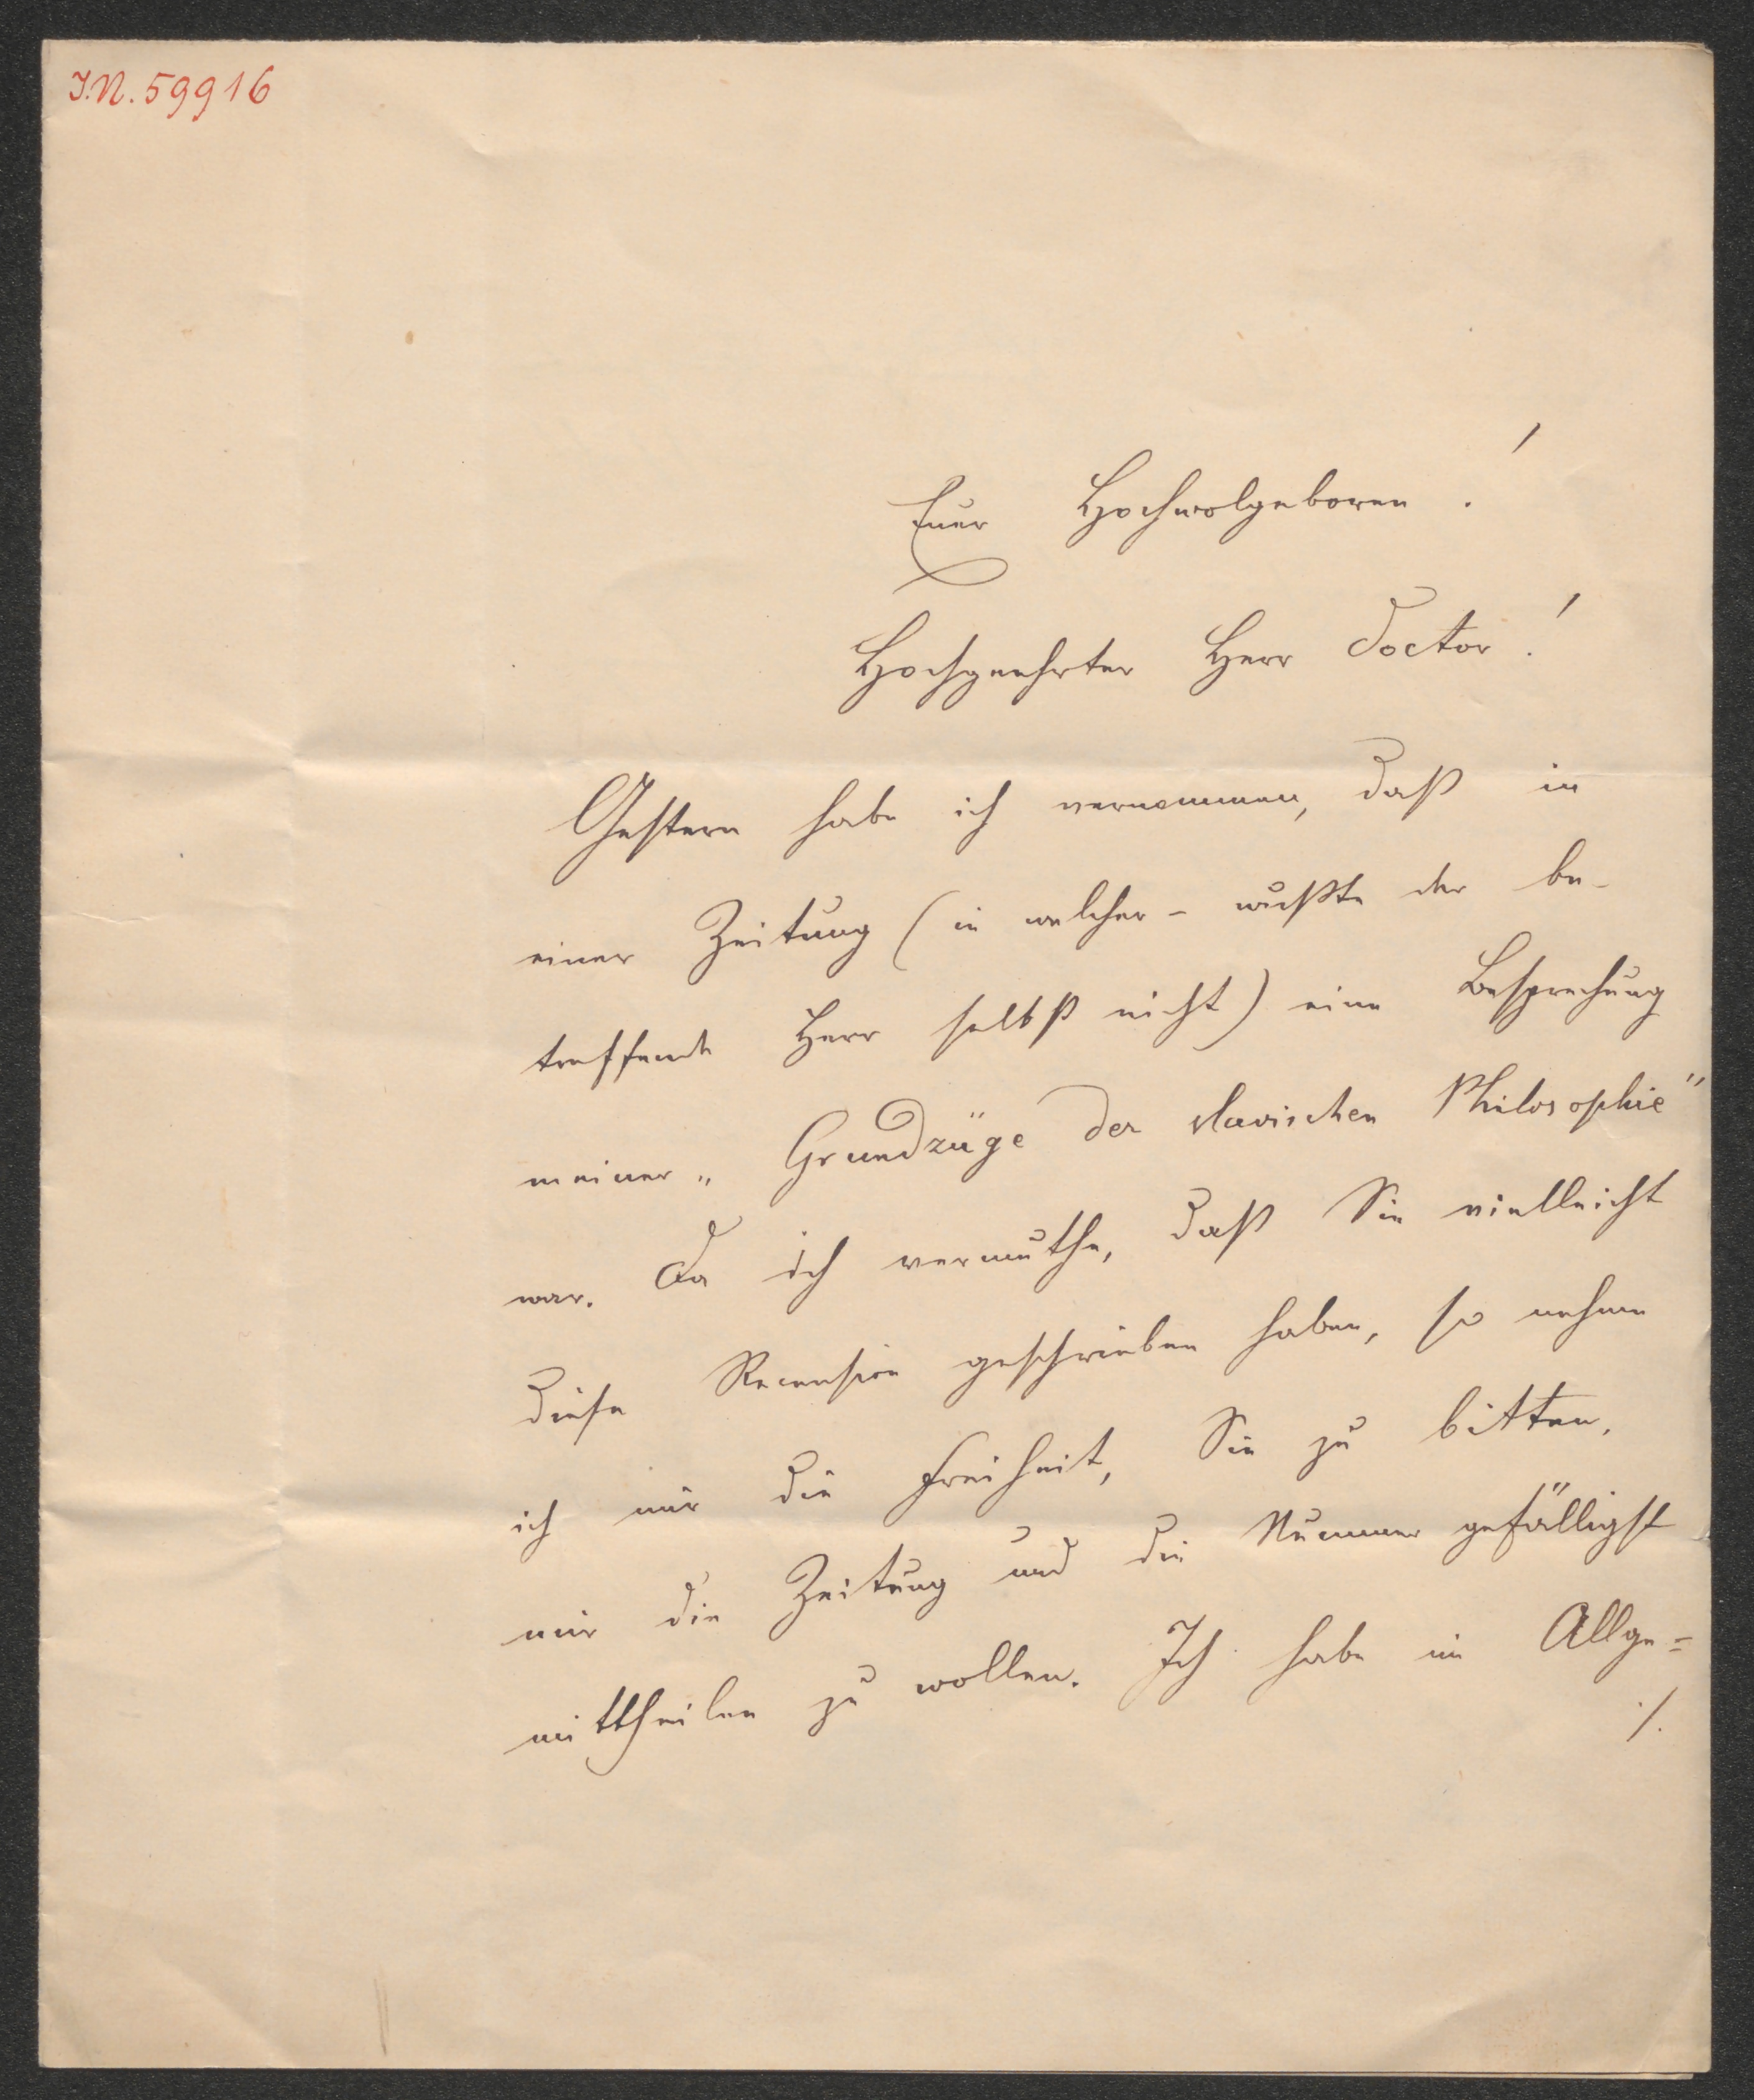 I.N. 59916
Euer Hochwolgeboren!
Hochgeehrter Herr Doctor!
Gestern habe ich vernommen, daß in
einer Zeitung (in welcher – wußte der be-
treffende Herr selbst nicht) eine Besprechung
meiner „Grundzüge der slavischen Philosophie"
war. Da ich vermuthe, daß Sie vielleicht
diese Recension geschrieben haben, so nehme
ich mir die Freiheit, Sie zu bitten,
mir die Zeitung und die Nummer gefälligst
mittheilen zu wollen. Ich habe im Allge=
./.